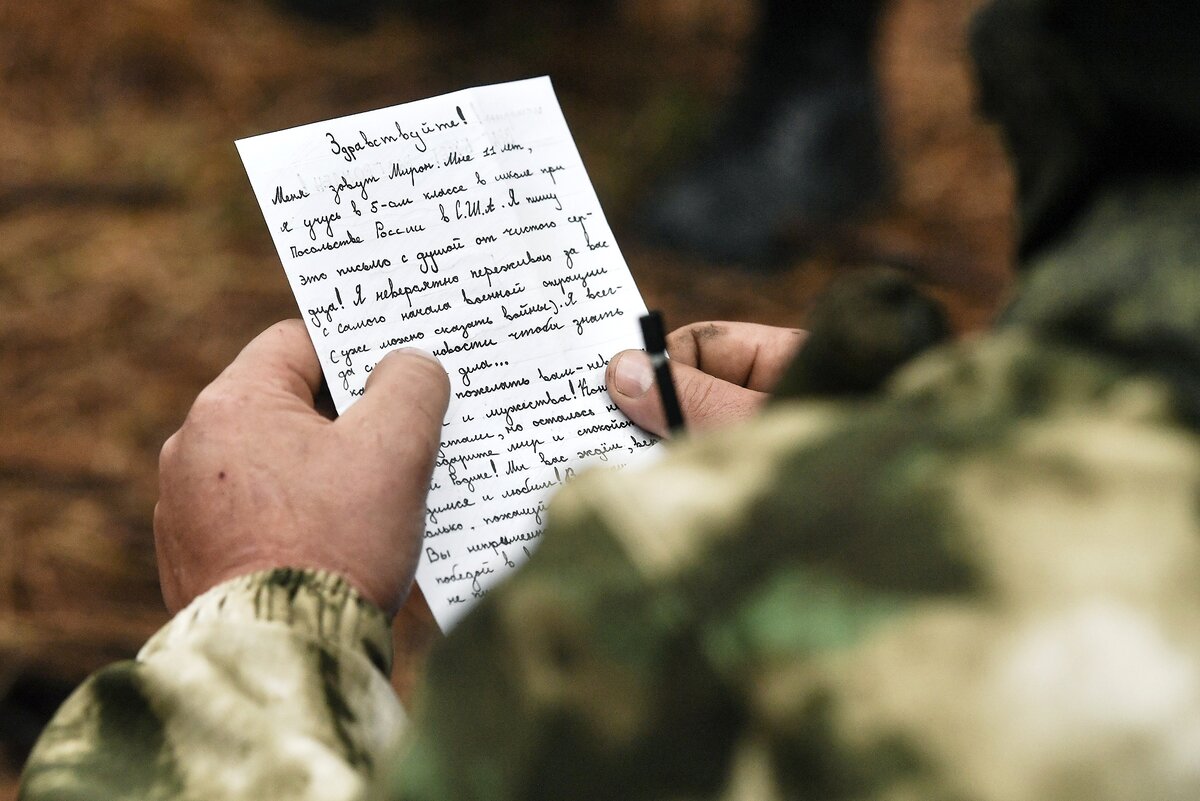 Здравствуйте!
Меня зовут Мирон. Мне 11 лет,
я учусь в 5-ом классе в школе при
Посольстве России в С.Ш.А. Я пишу
это письмо с душой от чистого сер-
дца! Я невероятно переживаю за вас
с самого начала военной операции
(уже можно сказать войны). Я всег-
да новости чтобы знать
дела...
пожелать вам-
и мужества!
стали, но осталось
мир и спокойст
Родине! Ми вас ждём,
и любим!
пожалуй
Вы
победой в
не